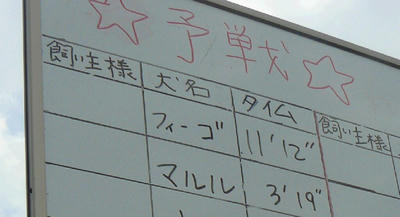 ☆予戦☆
飼い主様 犬名 タイム 飼い主様
フィーゴ 11'12"
マルル 3'19"